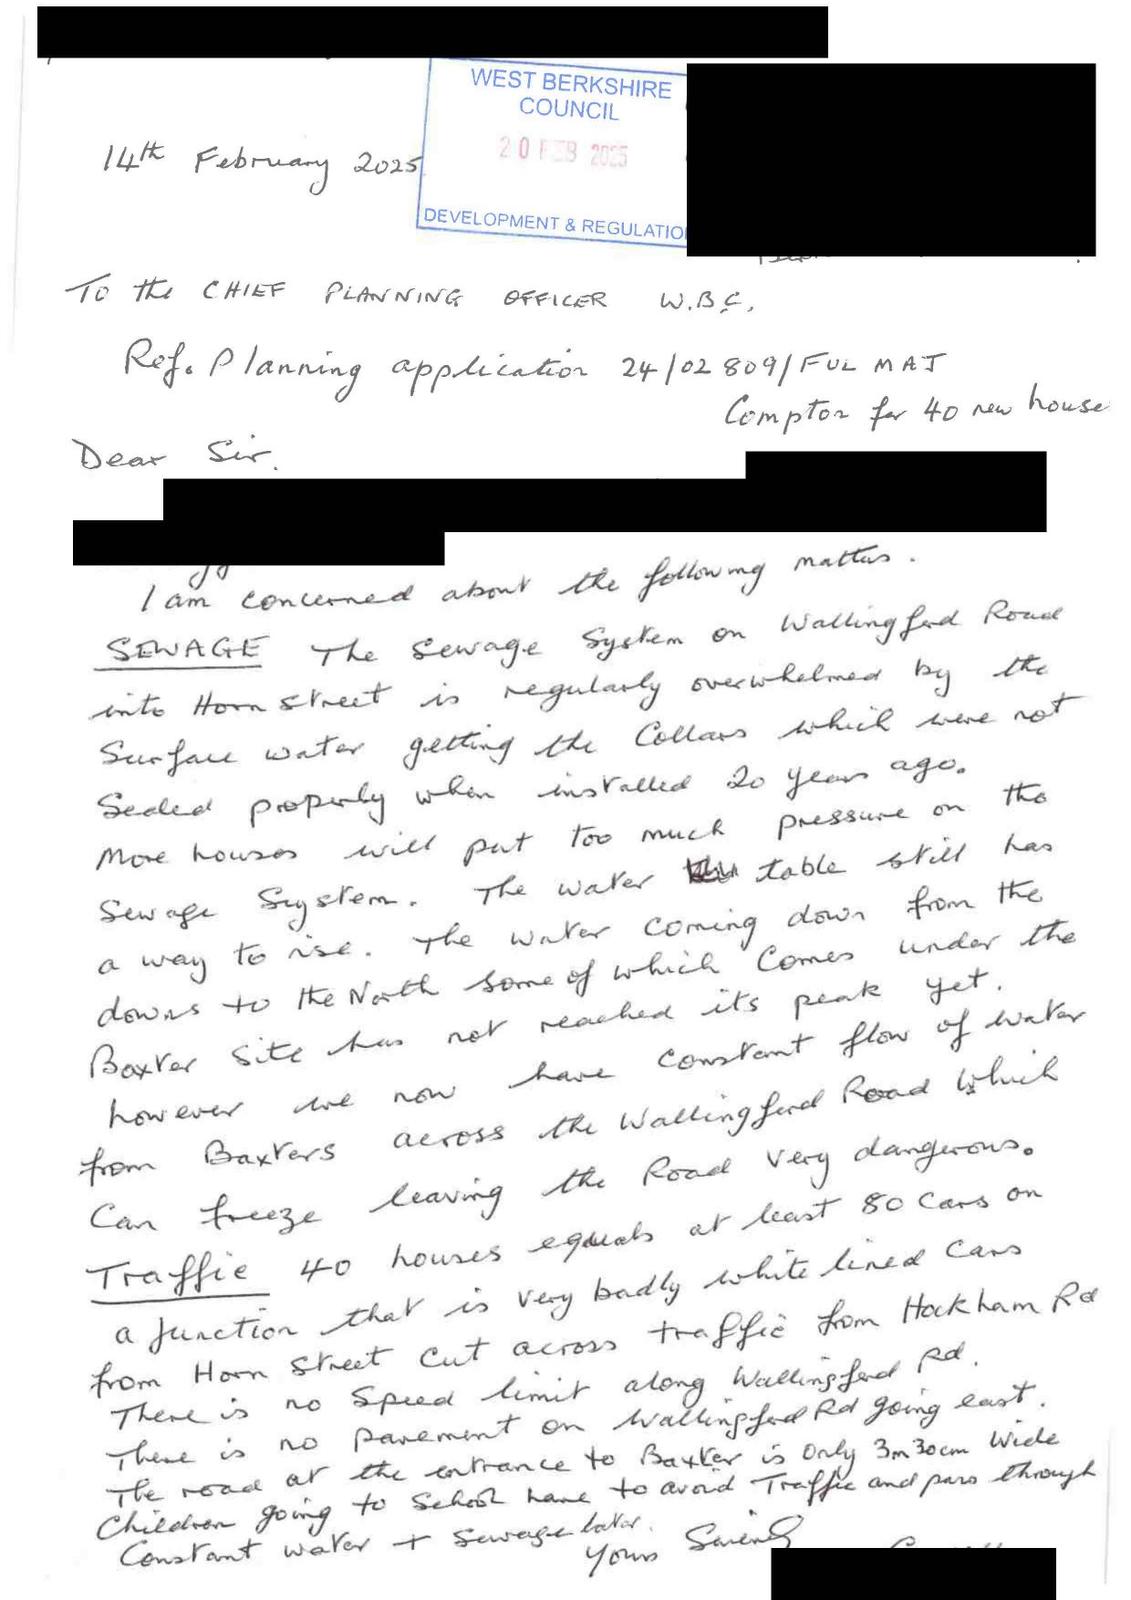 WEST BERKSHIRE
COUNCIL
20 FEB 2025
DEVELOPMENT & REGULATIO
14th February 2025
To the CHIEF PLANNING OFFICER W.B.C.
Ref. Planning application 24/02809/FULMAJ
Compton for 40 new house
Dear Sir.
I am concerned about the following matters.
SEWAGE The Sewage System on Wallingford Road
into Horn Street is regularly overwhelmed by the
Surface water getting the Collars which were not
Sealed properly when installed 20 years ago.
More houses will put too much pressure on the
Sewage System. The water table still has
a way to rise. The water coming down from the
downs to the North some of which Comes under the
Baxter Site has not reached its peak yet.
however we now have constant flow of water
from Baxters across the Wallingford Road which
Can freeze leaving the Road very dangerous.
Traffic 40 houses equals at least 80 cars on
a junction that is very badly white lined Cars
from Horn Street cut across traffic from Hockham Rd
There is no Speed limit along Wallingford Rd.
There is no pavement on Wallingford Rd going east.
The road at the entrance to Baxter is only 3m30cm Wide
Children going to School have to avoid Traffic and pass through
Constant water + Sewage later.
Yours